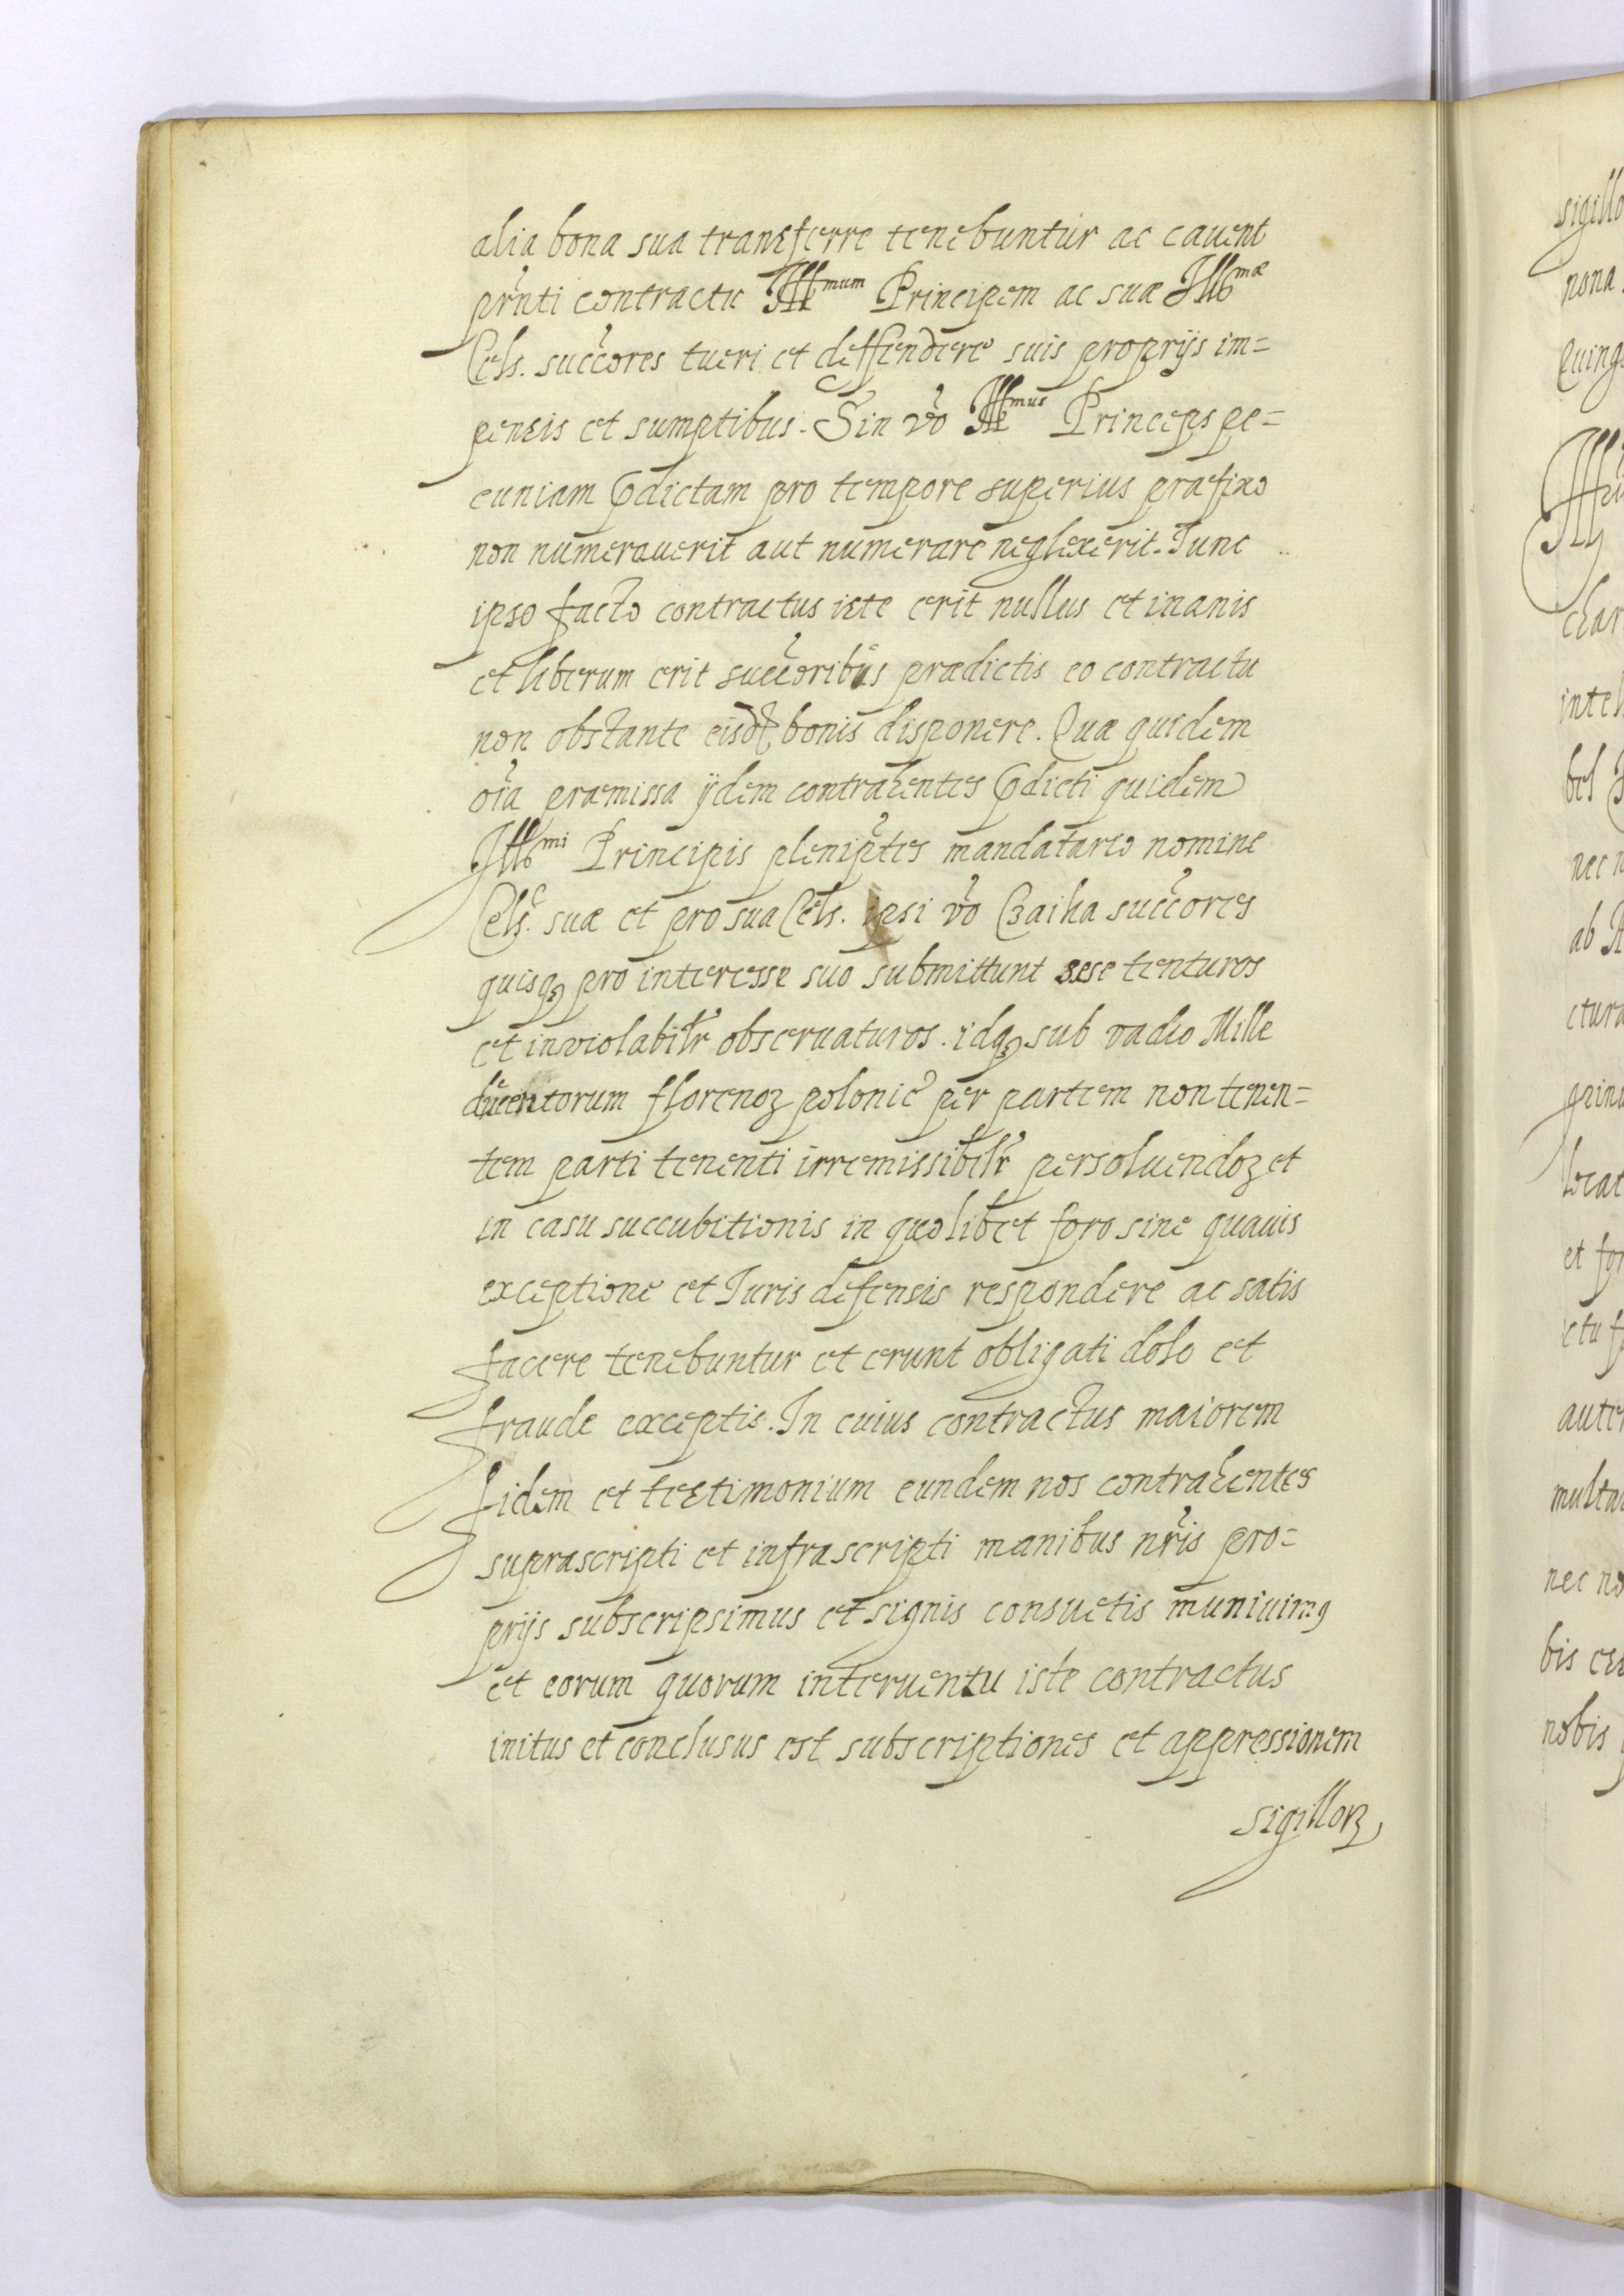 alia bona sua transferre tenebuntur ac cavent
prñti contractu Ill^mum Principem ac suæ Ill^mæ
Cels. succores tueri et deffendere suis proprijs im=
pensis et sumptibus. Sin vo Ill^mus Princeps pe=
cuniam p̃dictam pro tempore superius præfixo
non numerauerit aut numerare neglexerit. Tunc
ipso facto contractus iste erit nullus et inanis
et liberum erit succoribus prædictis eo contractu
non obstante eisd bonis disponere. Quæ quidem
oĩa præmissa ijdem contrahentes p̃dicti quidem
Ill^mi Principis plenip̃tes mandatario nomine
Cels. suæ et pro sua Cels. ipsi vo Czaika succores
quisq₃ pro interesse suo submittunt sese tenturos
et inviolabilr obseruaturos. idq₃ sub vadio Mille
ducentorum florenoꝝ polonic per partem non tenen=
tem parti tenenti irremissibilr persoluendoꝝ et
in casu succubitionis in quolibet foro sine quauis
exceptione et Iuris defensis respondere ac satis
facere tenebuntur et erunt obligati dolo et
fraude exceptis. In cuius contractus maiorem
fidem et testimonium eundem nos contrahentes
suprascripti et infrascripti manibus nr̃is pro=
prijs subscripsimus et signis consuetis muniuimꝰ
et eorum quorum interuentu iste contractus
initus et conclusus est subscriptiones et appressionem
sigilloꝝ
sigillo
nona
quing
char
intel
bel
nec n
ab A
ctura
locat
et for
ctu f
aute
multa
nec no
bis
nobis